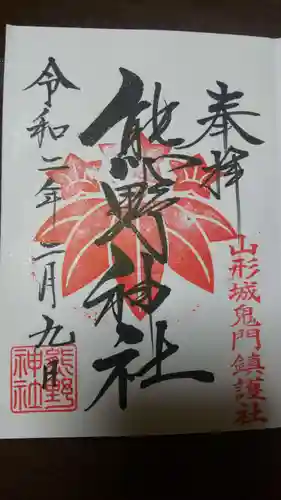 奉拝
山形城鬼門鎮護社
熊野神社
令和二年二月九日
熊野
神社